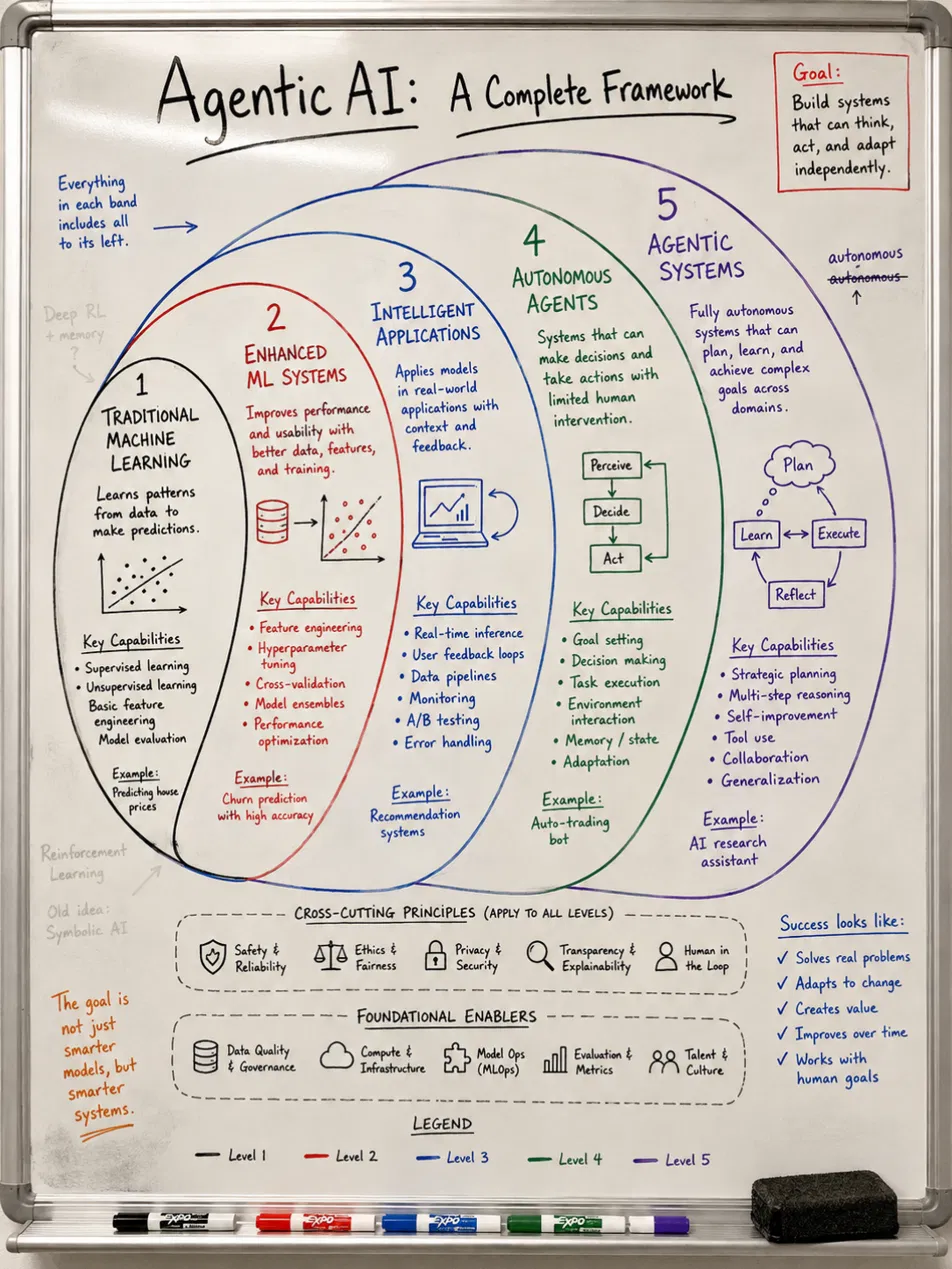 Agentic AI: A Complete Framework
Goal:
Build systems
that can think,
act, and adapt
independently.
Everything
in each band
includes all
to its left.
autonomous
autonomous
Deep RL
+ memory
?
1
TRADITIONAL
MACHINE
LEARNING
Learns patterns
from data to
make predictions.
Key Capabilities
• Supervised learning
• Unsupervised learning
Basic feature
engineering
Model evaluation
Example:
Predicting house
prices
2
ENHANCED
ML SYSTEMS
Improves performance
and usability with
better data, features,
and training.
Key Capabilities
• Feature engineering
• Hyperparameter
tuning
• Cross-validation
• Model ensembles
• Performance
optimization
Example:
Churn prediction
with high accuracy
3
INTELLIGENT
APPLICATIONS
Applies models
in real-world
applications with
context and
feedback.
Key Capabilities
• Real-time inference
• User feedback loops
• Data pipelines
• Monitoring
• A/B testing
• Error handling
Example:
Recommendation
systems
4
AUTONOMOUS
AGENTS
Systems that can
make decisions and
take actions with
limited human
intervention.
Perceive
Decide
Act
Key Capabilities
• Goal setting
• Decision making
• Task execution
• Environment
interaction
• Memory / state
• Adaptation
Example:
Auto-trading
bot
5
AGENTIC
SYSTEMS
Fully autonomous
systems that can
plan, learn, and
achieve complex
goals across
domains.
Plan
Learn
Execute
Reflect
Key Capabilities
• Strategic planning
• Multi-step reasoning
• Self-improvement
• Tool use
• Collaboration
• Generalization
Example:
AI research
assistant
Reinforcement
Learning
Old idea:
Symbolic AI
The goal is
not just
smarter
models, but
smarter
systems.
CROSS-CUTTING PRINCIPLES (APPLY TO ALL LEVELS)
Safety &
Reliability
Ethics &
Fairness
Privacy &
Security
Transparency &
Explainability
Human in
the Loop
FOUNDATIONAL ENABLERS
Data Quality
& Governance
Compute &
Infrastructure
Model Ops
(MLOps)
Evaluation &
Metrics
Talent &
Culture
Success looks like:
✓ Solves real problems
✓ Adapts to change
✓ Creates value
✓ Improves over time
✓ Works with
human goals
LEGEND
Level 1
Level 2
Level 3
Level 4
Level 5
EXPO
EXPO
EXPO
EXPO